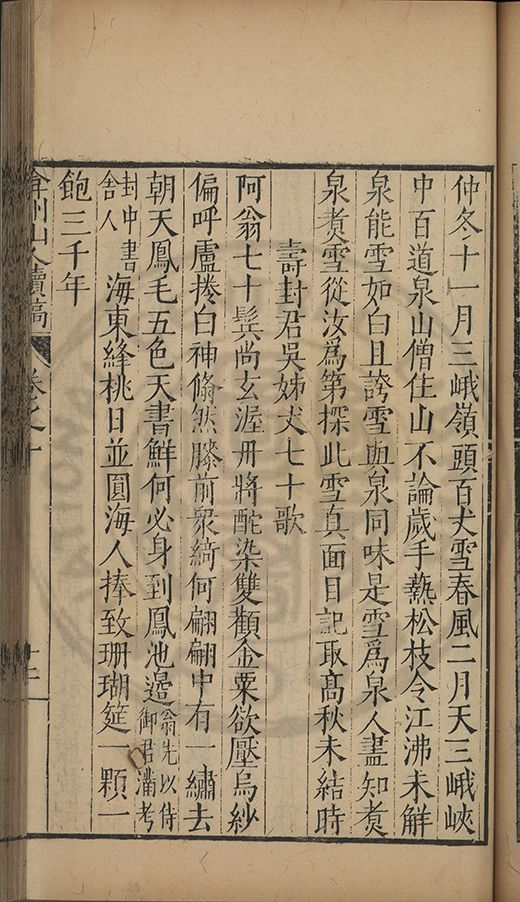 仲冬十一月三峨嶺頭百丈雪春風二月天三峨峽
中百道泉山僧住山不論歲手熱松枝令江沸未解
泉能雪如白且誇雪與泉同味是雪為泉人盡知煮
泉煮雪從汝為第探此雪真面目記取高秋未結時
壽封君吳姊丈七十歌
阿翁七十鬂尚玄渥丹將酡染雙顴金粟欲壓烏紗
偏呼盧捲白神翛然膝前衆綺何翩翩中有一繡去
朝天鳳毛五色天書鮮何必身到鳳池邉翁先以侍
御君滿考
封中書
舍人
海東絳桃日並圓海人捧致珊瑚筵一顆一
飽三千年
弇州山人續稿
卷之十
十二